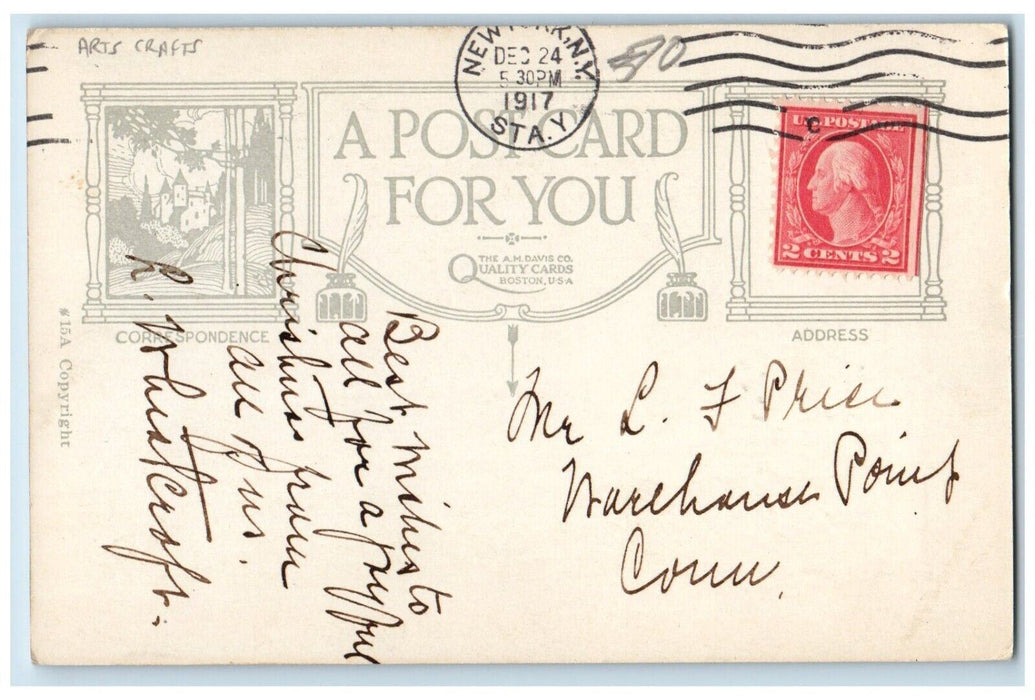 ARTS CRAFTS
NEW YORK, N.Y.
DEC 24
5 30PM
1917
STA. Y
A POST CARD
FOR YOU
THE A.M. DAVIS CO.
QUALITY CARDS
BOSTON, U.S.A
U.S. POSTAGE
2 CENTS 2
CORRESPONDENCE
ADDRESS
#15A Copyright
Best Wishes to
all for a joyful
Christmas from
all of us.
R. Wheatcroft.
Mr L. F Price
Warehouse Point
Conn.